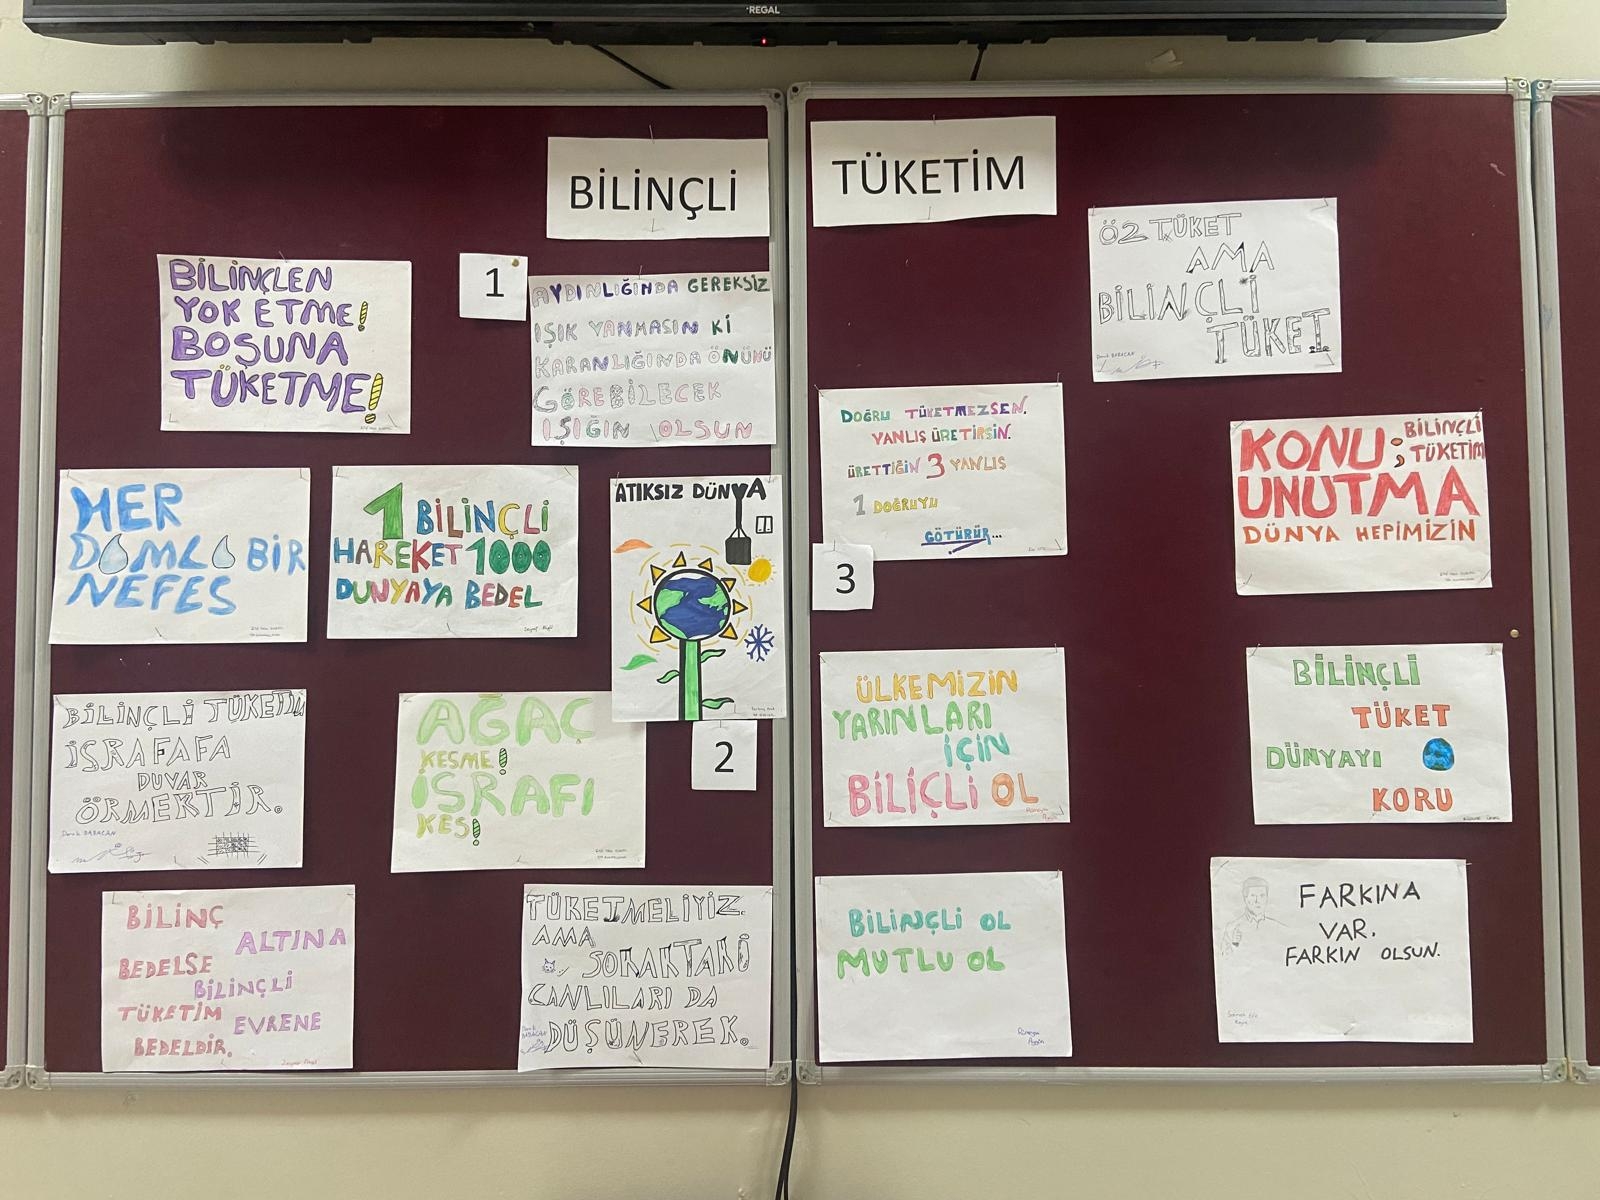 REGAL
BİLİNÇLİ
TÜKETİM
BİLİNÇLEN
YOK ETME!
BOŞUNA
TÜKETME!
1
AYDINLIĞINDA GEREKSİZ
IŞIK YANMASIN Kİ
KARANLIĞINDA ÖNÜNÜ
GÖREBİLECEK
IŞIĞIN OLSUN
HER
DAMLA BİR
NEFES
1 BİLİNÇLİ
HAREKET 1000
DUNYAYA BEDEL
ATIKSIZ DÜNYA
2
BİLİNÇLİ TÜKETİM
İSRAFAFA
DUVAR
ÖRMEKTİR.
AĞAÇ
KESME!
İSRAFI
KES!
BİLİNÇ
ALTINA
BEDELSE
BİLİNÇLİ
TÜKETİM
EVRENE
BEDELDİR.
TÜKETMELİYİZ.
AMA
SOKAKTAKİ
CANLILARI DA
DÜŞÜNEREK.
ÖZ TÜKET
AMA
BİLİNÇLİ
TÜKET
DOĞRU TÜKETMEZSEN.
YANLIŞ ÜRETİRSİN.
ÜRETTİĞİN 3 YANLIŞ
1 DOĞRUYU
GÖTÜRÜR...
3
KONU; BİLİNÇLİ
TÜKETİM
UNUTMA
DÜNYA HEPİMİZİN
ÜLKEMİZİN
YARINLARI
İÇİN
BİLİÇLİ OL
BİLİNÇLİ
TÜKET
DÜNYAYI
KORU
BİLİNÇLİ OL
MUTLU OL
FARKINA
VAR.
FARKIN OLSUN.